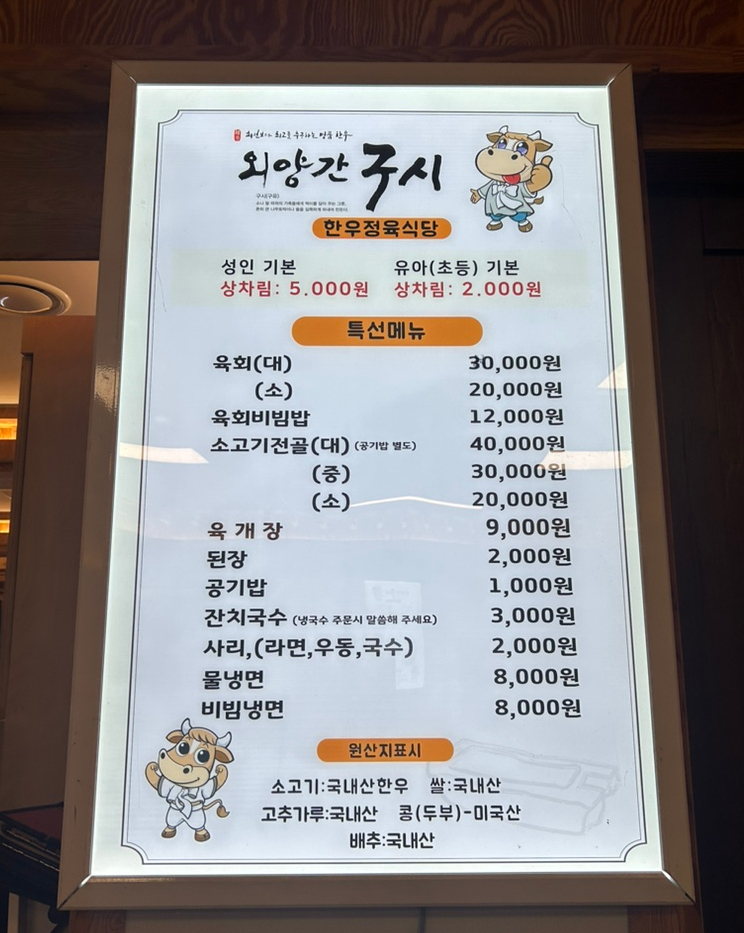 최고를 추구하는 명품 한우
외양간 구시
구시(구유)
한우정육식당
성인 기본 유아(초등) 기본
상차림: 5.000원 상차림: 2.000원
특선메뉴
육회(대) 30,000원
(소) 20,000원
육회비빔밥 12,000원
소고기전골(대) (공기밥 별도) 40,000원
(중) 30,000원
(소) 20,000원
육 개 장 9,000원
된장 2,000원
공기밥 1,000원
잔치국수 (냉국수 주문시 말씀해 주세요) 3,000원
사리,(라면,우동,국수) 2,000원
물냉면 8,000원
비빔냉면 8,000원
원산지표시
소고기:국내산한우 쌀:국내산
고추가루:국내산 콩(두부)-미국산
배추:국내산